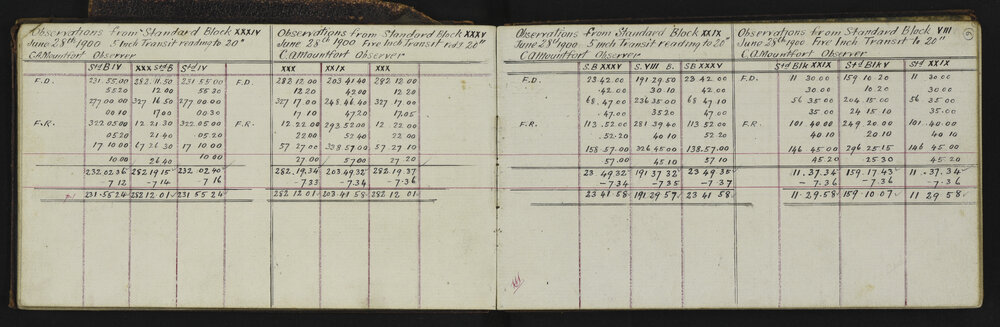 Observations from Standard Block XXXIV
June 28th 1900 5 Inch Transit reading to 20"
C.A.Mountfort Observer
Std B IV XXX Std B Std IV
F.D. 231.55.00 282.11.50 231 55 00
55 20 12 00 55 30
277 00 00 327 16 50 277 00.00
17 00 00 30
F.R. 322 05 00 12 21 30 322 05 00
05 20 21 40 05 20
17 10 00 67 26 30 17 10 00
10 00 26 40 10 00
232 02 36 282 19 15 232 02 40
- 7 12 - 7 14 - 7 16
231.55 24 282 12 01 231 55 24
Observations from Standard Block XXXV
June 28th 1900 Five Inch Transit rdg 20"
C.A.Mountfort Observer
XXX XXIX XXX
F.D. 282 12 00 203 41 40 282 12 00
12 20 42 00 12 20
327 17 00 248 46 40 327 17 00
17 10 47 20 17 05
F.R. 12 22 00 293 52 00 12 22 00
22 00 52 40 22 00
57 27 00 338 57 00 57 27 10
27 00 57 00 27 20
282.19.34 203 49 32 282 19 37
- 7 33 - 7 34 - 7 36
282 12 01 203 41 58 282 12 01
Observations from Standard Block XXIX
June 28th 1900 5 Inch Transit reading to 20"
C.A.Mountfort Observer
S.B XXXV S. VIII B. S.B XXXV
F.D. 23 42.00 191 29 50 23 42 00
42.00 30 10 42 00
68.47.00 236 35 00 68 47 10
47.00 35 20 47 00
F.R. 113.52 00 281 39 40 113 52 00
52.20 40 10 52 20
158.57.00 326 45 00 138.57.00
57 00 45 10 57 10
23 49 32 191 37 32 23 49 35
- 7 34 - 7 35 - 7 37
23 41 58 191 29 57 23 41 58
Observations from Standard Block VIII
June 28th 1900 Five Inch Transit to 20"
C.A.Mountfort Observer
Std Blk XXIX Std Blk V Std XXIX
F.D. 11 30.00 159 10 20 11 30 00
30 00 10.20 30 00
56 35 00 204 15 00 56 35 00
35 00 24 15 10 35 00
F.R. 101 40 00 249 20.00 101.40.00
40 10 20 10 40 10
146 45 00 294 25 15 146 45 00
45 20 25 30 45 20
11.37.34 159.17.43 11.37.34
- 7.36 - 7.36 - 7.36
11-29-58 159 10 07 11 29 58